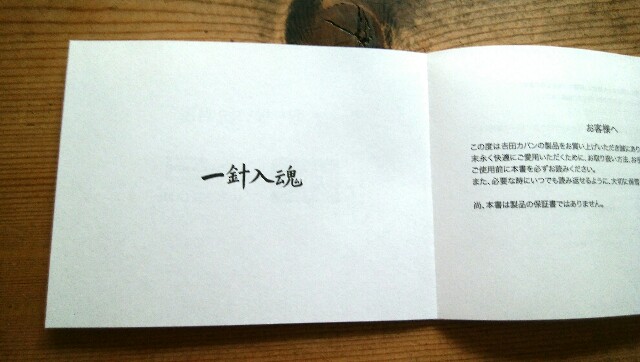 一針入魂
お客様へ
この度は吉田カバンの製品をお買い上げいただき誠にあり
末永く快適にご愛用いただくために、お取り扱い方法、お
ご使用前に本書を必ずお読みください。
また、必要な時にいつでも読み返せるように、大切に保管
尚、本書は製品の保証書ではありません。